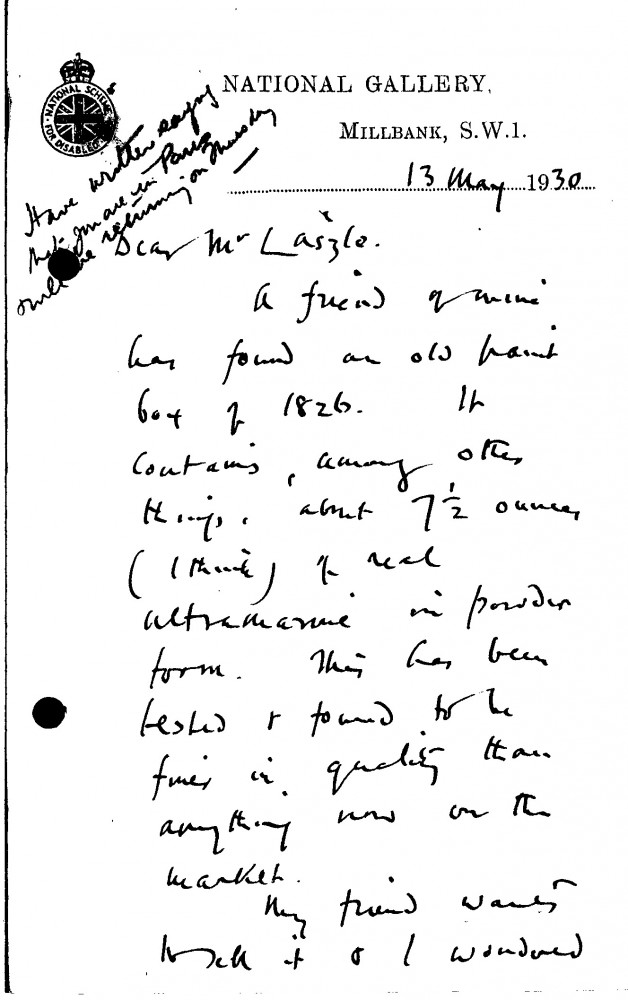 NATIONAL SCHEME
FOR DISABLED
NATIONAL GALLERY,
MILLBANK, S.W.1.
13 May 1930
Have written saying
that you are in Paris
& will be returning on Thursday
Dear Mr László.
A friend of mine
has found an old paint
box of 1826. It
contains, among other
things, about 7½ ounces
(I think) of real
ultramarine in powder
form. This has been
tested & found to be
finer in quality than
anything now on the
market.
My friend wants
to sell it & I wondered